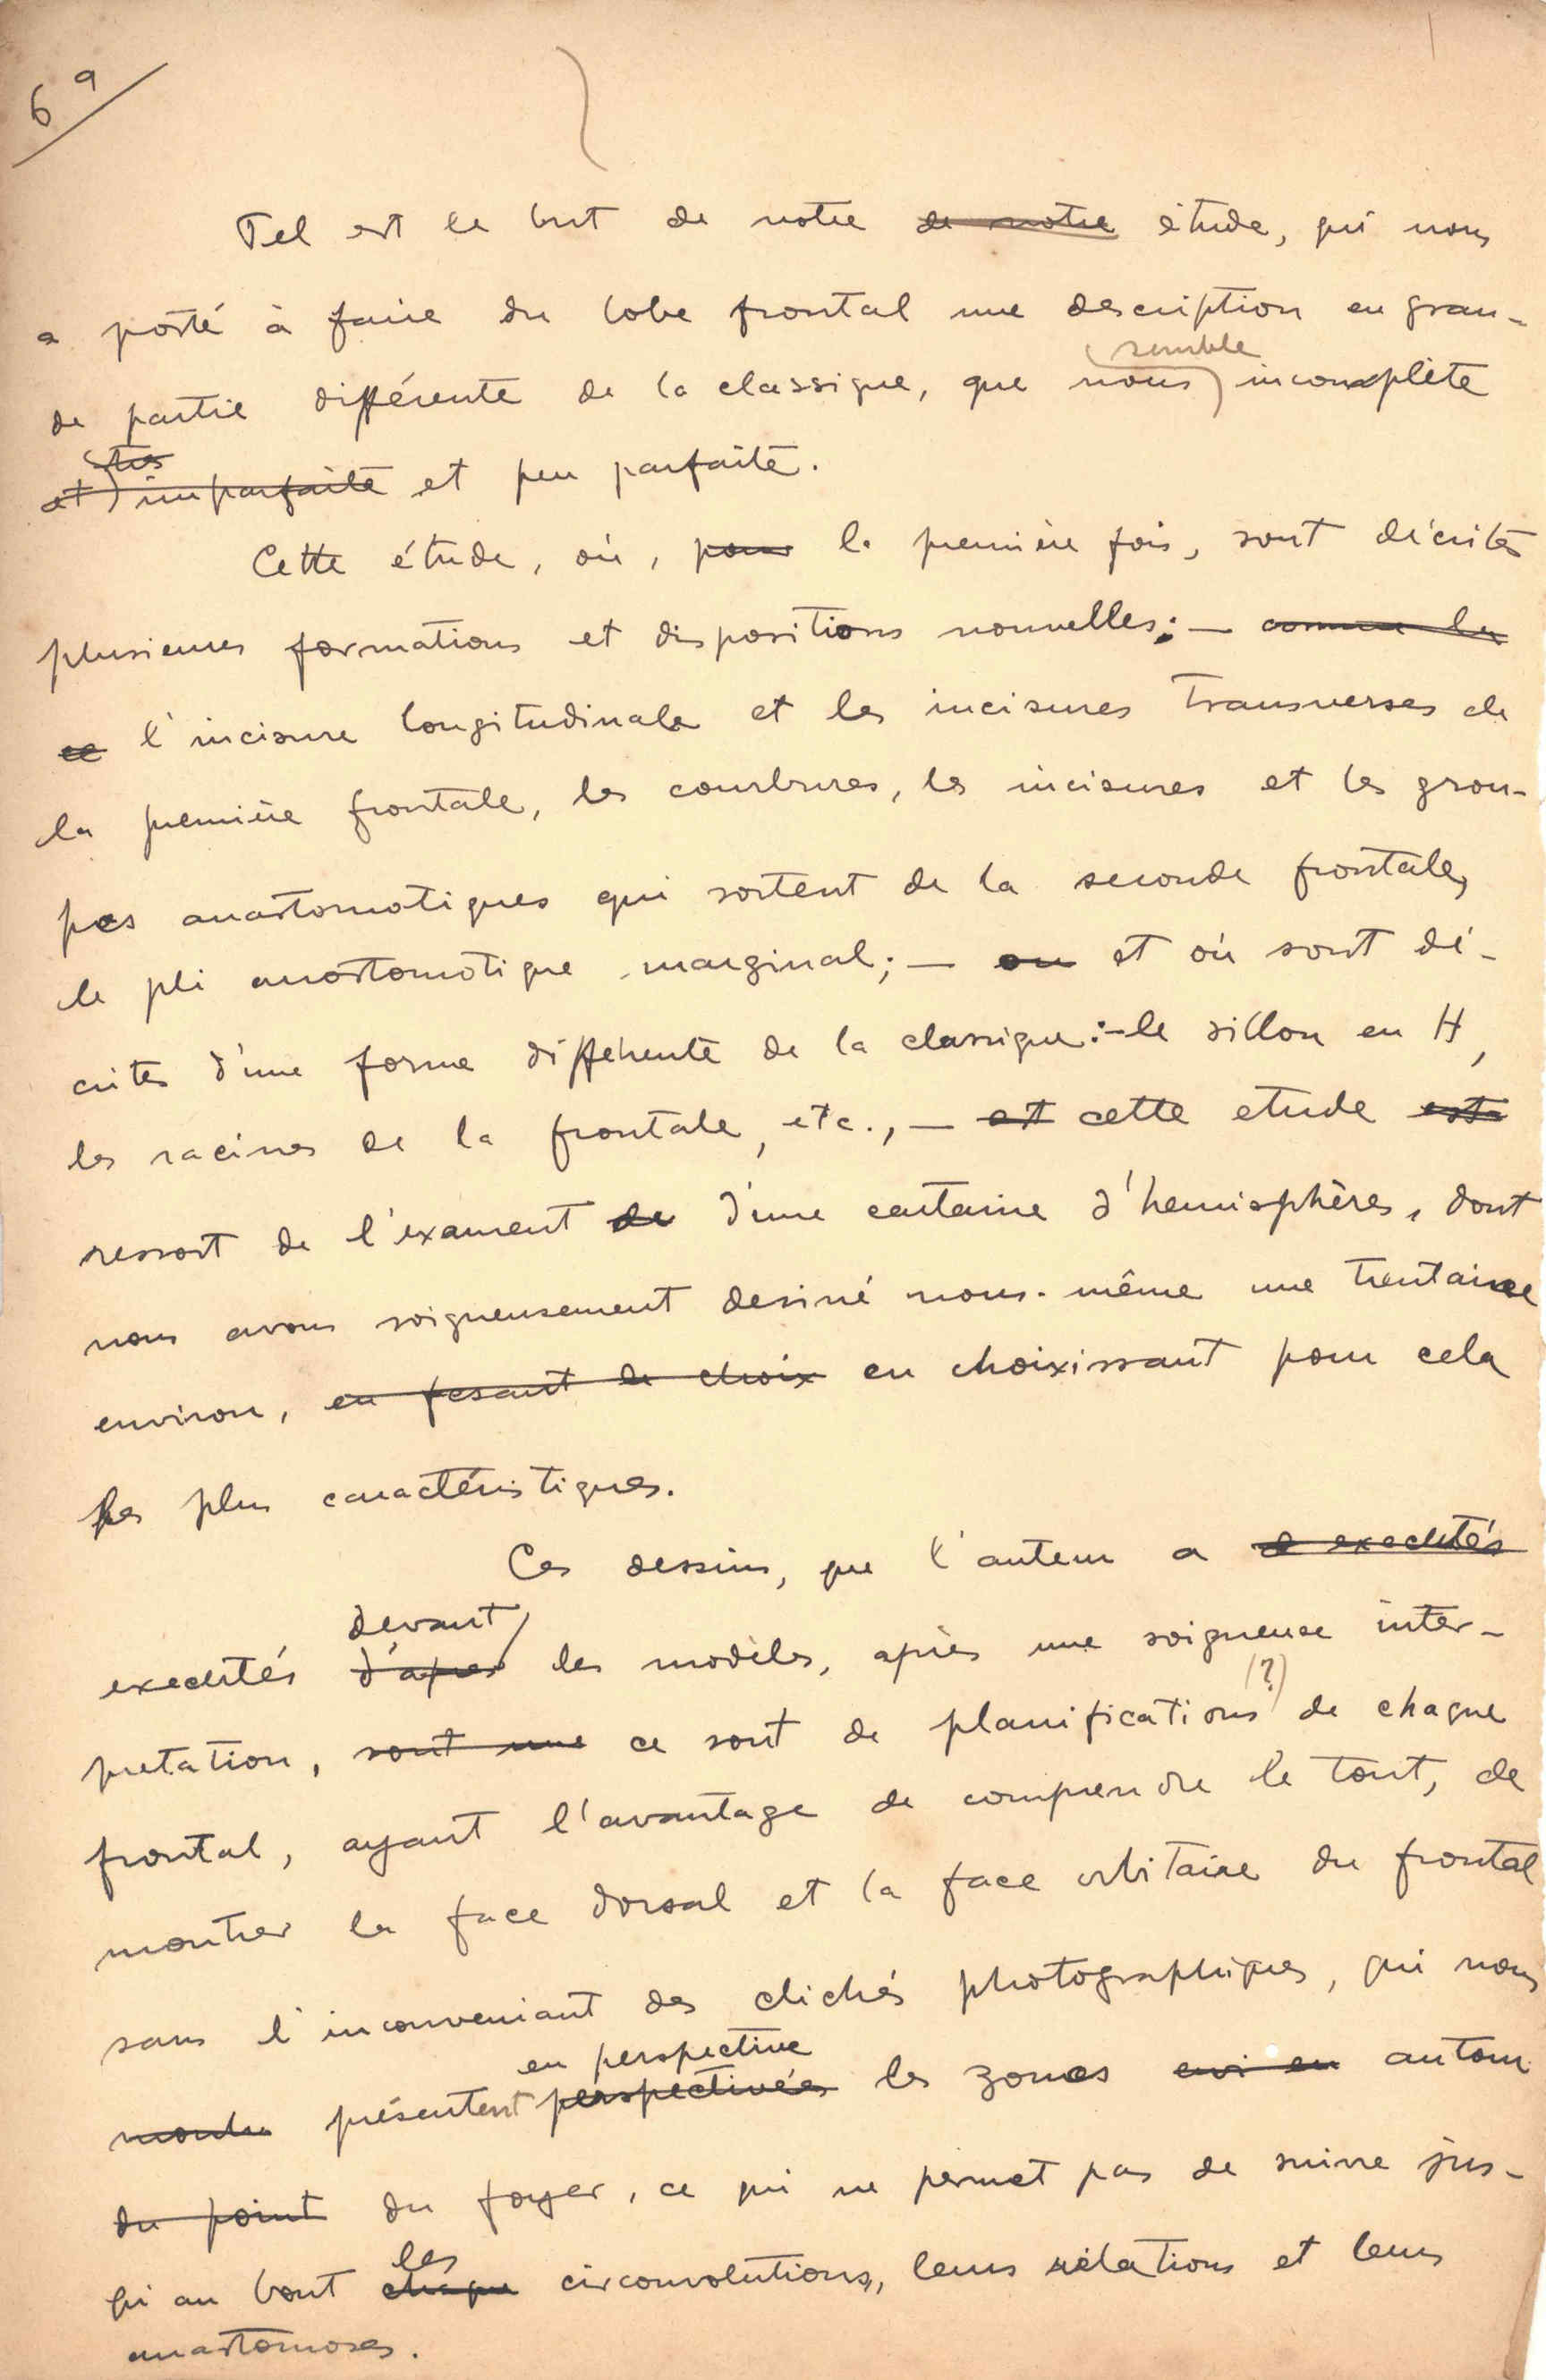 6a
Tel est le but de notre de notre étude, qui nous
a porté à faire du lobe frontal une description en gran-
semble
de partie différente de la classique, que nous incomplète
très
et imparfaite et peu parfaite.
Cette étude, où, pour la première fois, sont décrites
plusieures formations et dispositions nouvelles: — comme la
ce l'incisure longitudinale et les incisures transverses de
la première frontale, les courbures, les incisures et les grou-
pes anastomotiques qui sortent de la seconde frontale,
le pli anastomotique marginal; — ou et où sont dé-
crites d'une forme différente de la classique:- le sillon en H,
les racines de la frontale, etc., — est cette etude est
ressort de l'exament de d'une centaine d'hemisphères, dont
nous avons soigneusement desiné nous-même une trentaine
environ, en fesant le choix en choixissant pour cela
les plus caractéristiques.
Ces dessins, que l'auteur a d executés
devant
executés d'apres les modèles, après une soigneuse inter-
(?)
pretation, sont une ce sont de planifications de chaque
frontal, ayant l'avantage de comprendre le tout, de
montrer la face dorsal et la face orbitaire du frontal
sans l'inconveniant des clichés photographiques, qui nous
en perspective
montre présentent perspectivées les zones envi en autour
du point du foyer, ce qui ne permet pas de suivre jus-
les
qu'au bout chaque circonvolutions, leurs relations et leurs
anastomoses.